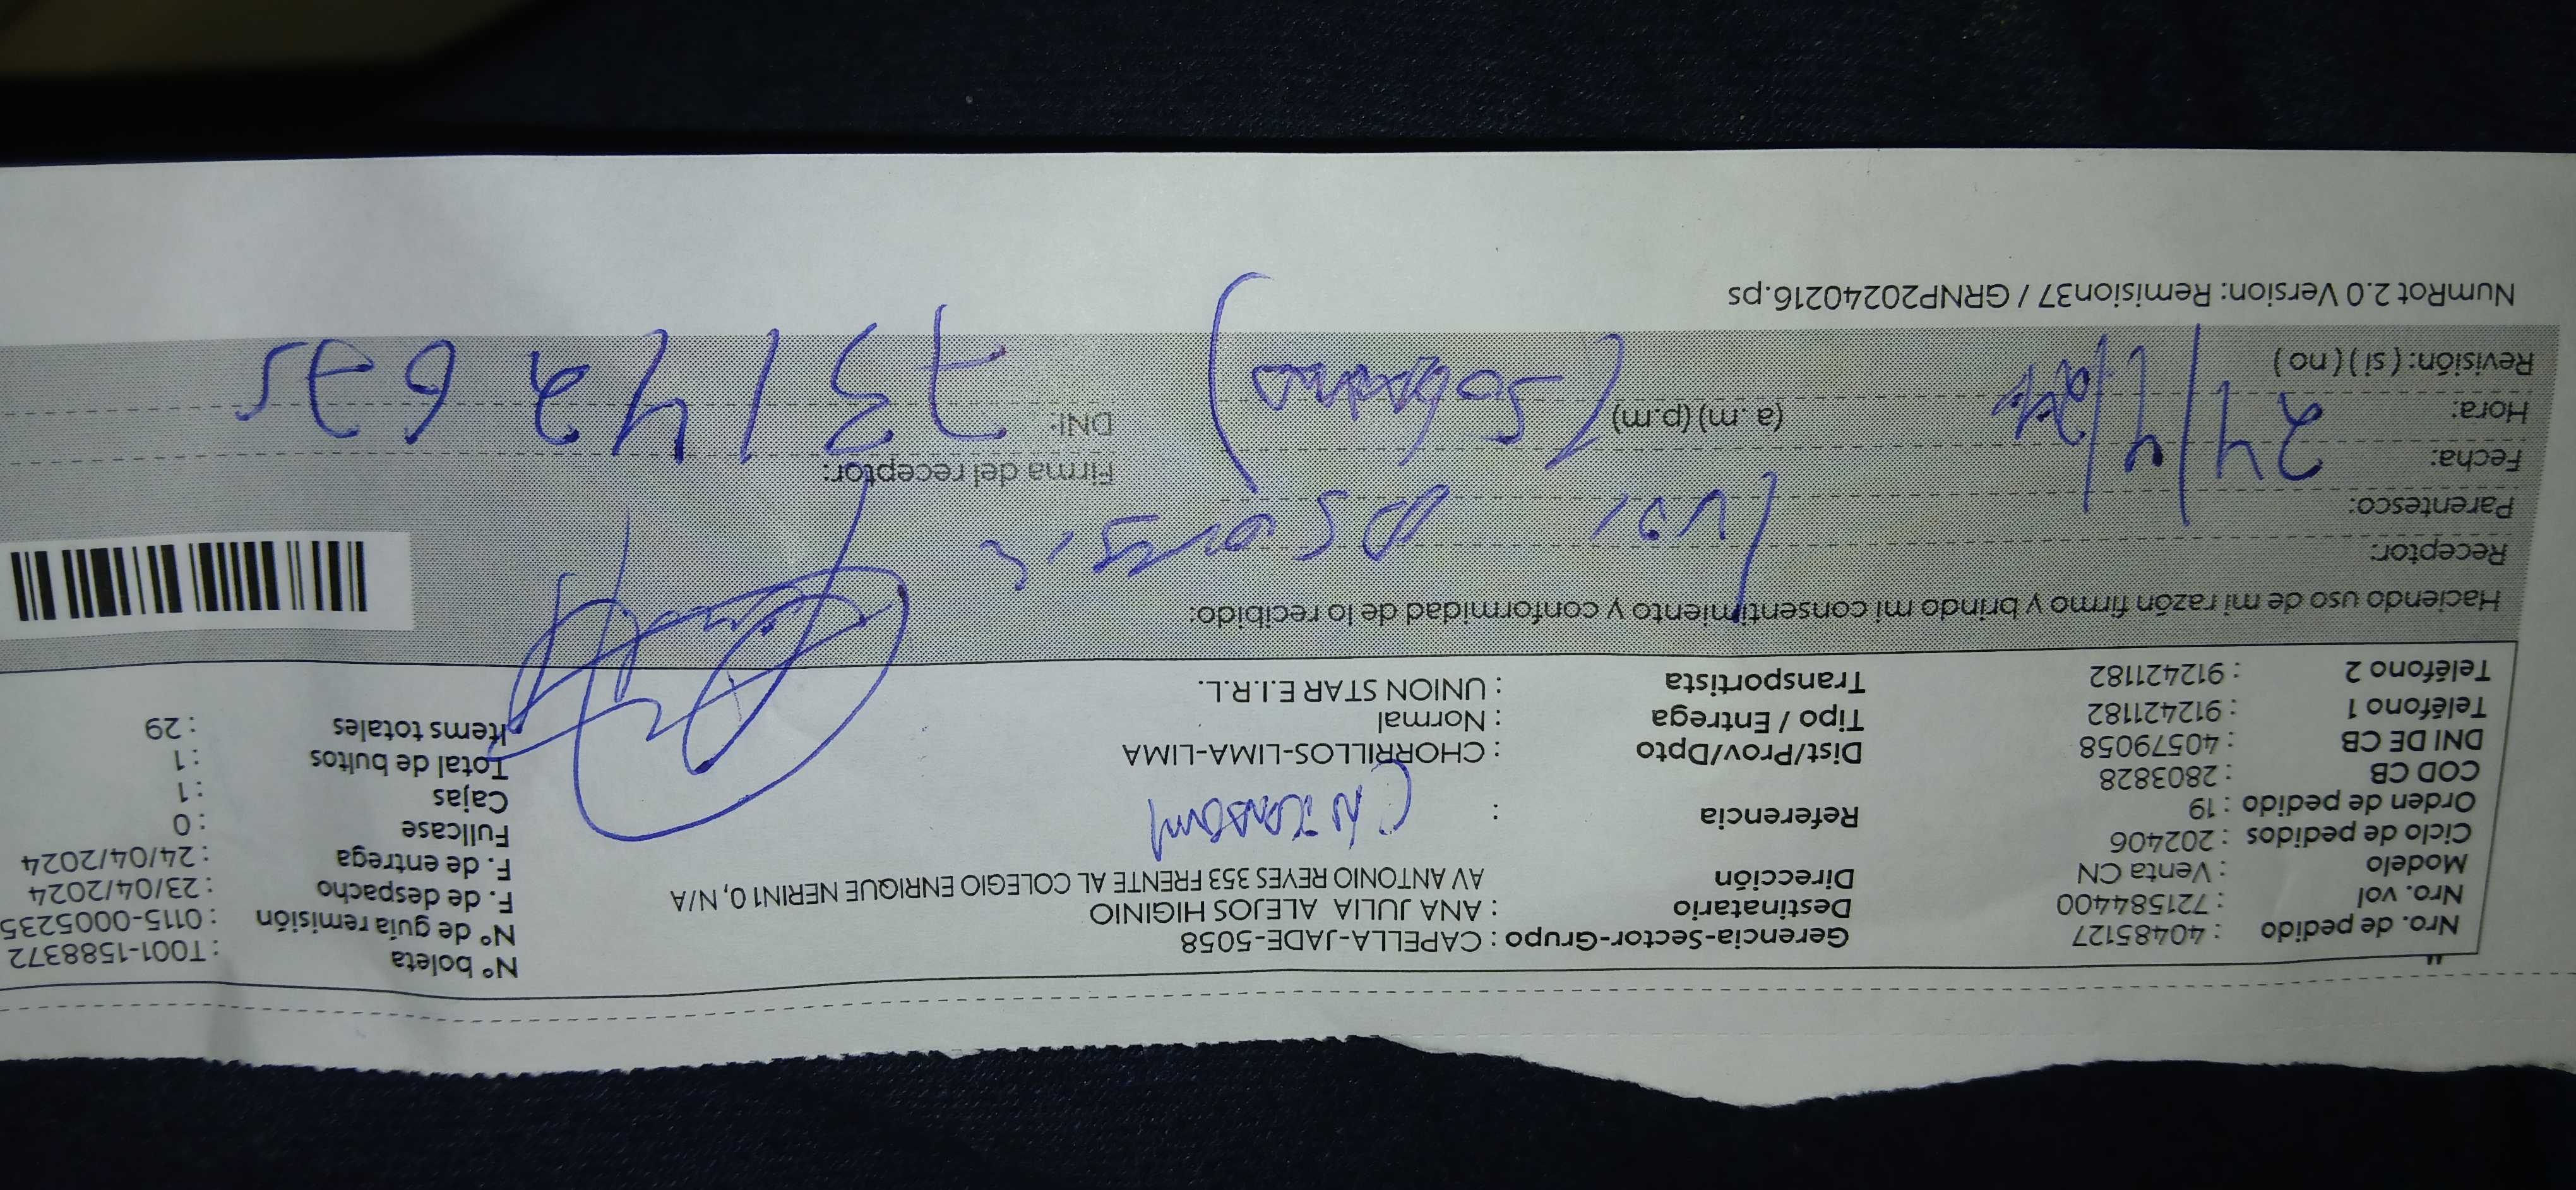 Nro. de pedido : 40485127 Gerencia-Sector-Grupo : CAPELLA-JADE-5058 N° boleta : T001-1588372
Nro. vol : 721584400 Destinatario : ANA JULIA ALEJOS HIGINIO N° de guía remisión : 0115-0005235
Modelo : Venta CN Dirección AV ANTONIO REYES 353 FRENTE AL COLEGIO ENRIQUE NERINI 0, N/A F. de despacho : 23/04/2024
Ciclo de pedidos : 202406 F. de entrega : 24/04/2024
Orden de pedido : 19 Referencia : Fullcase : 0
COD CB : 2803828 Cajas : 1
DNI DE CB : 40579058 Dist/Prov/Dpto : CHORRILLOS-LIMA-LIMA Total de bultos : 1
Teléfono 1 : 912421182 Tipo / Entrega : Normal Items totales : 29
Teléfono 2 : 912421182 Transportista : UNION STAR E.I.R.L.
Haciendo uso de mi razón firmo y brindo mi consentimiento y conformidad de lo recibido:
Receptor:
Parentesco:
Fecha: 24/4/24 Firma del receptor:
Hora: (a. m) (p.m) DNI: 73142675
Revisión: ( si ) ( no )
NumRot 2.0 Version: Remision37 / GRNP20240216.ps